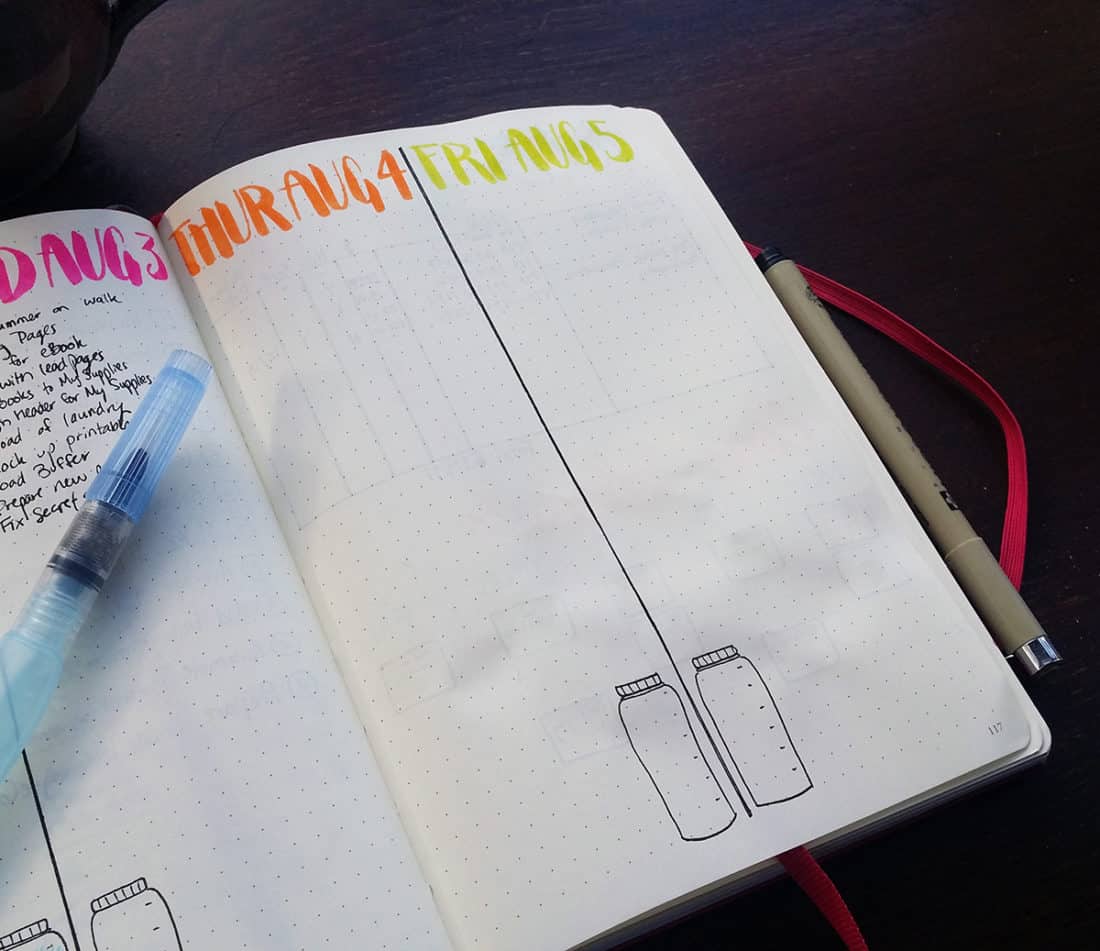 D AUG 3
ummer on walk
g Pages
for eBook
with leadpages
books to My Supplies
header for My Supplies
oad of laundry
ock up printable
oad Buffer
Prepare new
Fix secret
THUR AUG 4
FRI AUG 5
117